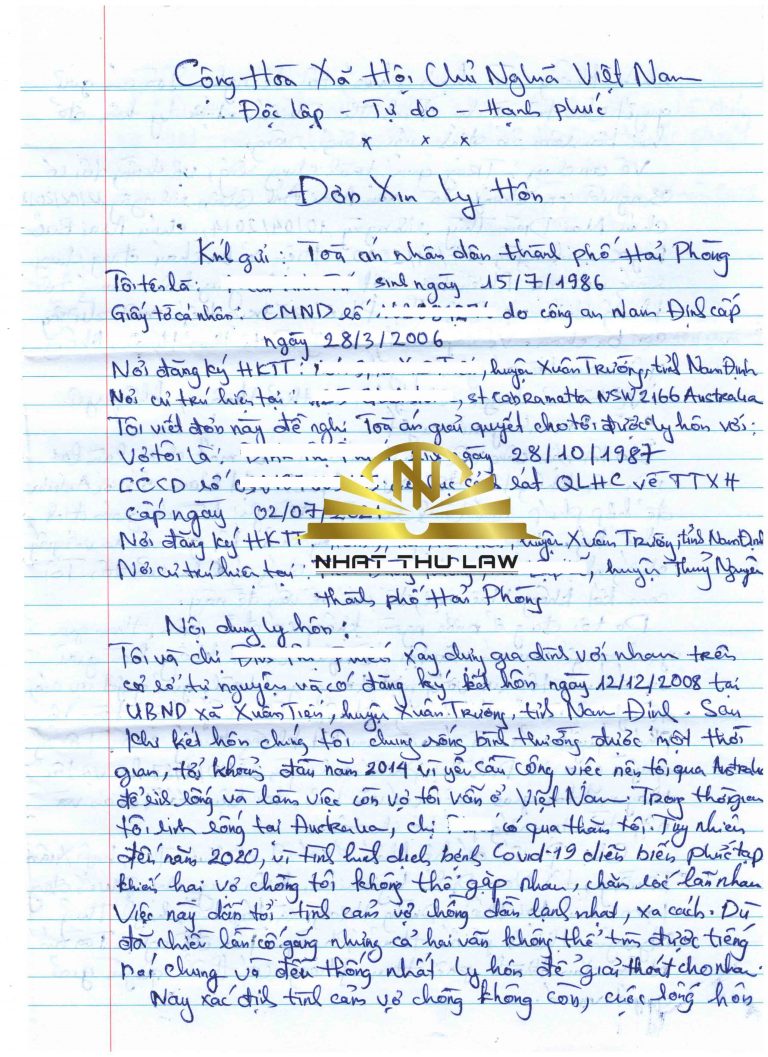 Cộng Hòa Xã Hội Chủ Nghĩa Việt Nam
Độc lập - Tự do - Hạnh phúc
x x x
Đơn Xin Ly Hôn
Kính gửi: Toà án nhân dân thành phố Hải Phòng
Tôi tên là: sinh ngày 15/7/1986
Giấy tờ cá nhân: CMND số do công an Nam Định cấp
ngày 28/3/2006
Nơi đăng ký HKTT: , huyện Xuân Trường, tỉnh Nam Định
Nơi cư trú hiện tại , st Cabramatta NSW 2166 Australia
Tôi viết đơn này đề nghị Toà án giải quyết cho tôi được ly hôn với:
Vợ tôi là: ngày 28/10/1987
CCCD số sát QLHC về TTXH
cấp ngày 02/07/2021
Nơi đăng ký HKTT: huyện Xuân Trường, tỉnh Nam Định
Nơi cư trú hiện tại: , huyện Thuỷ Nguyên
thành phố Hải Phòng
NHAT THU LAW
Nội dung ly hôn:
Tôi và chị xây dựng gia đình với nhau trên
cơ sở tự nguyện và có đăng ký kết hôn ngày 12/12/2008 tại
UBND xã Xuân Tiến, huyện Xuân Trường, tỉnh Nam Định. Sau
khi kết hôn chúng tôi chung sống bình thường được một thời
gian, tới khoảng đầu năm 2014 vì yêu cầu công việc nên tôi qua Australia
để sinh sống và làm việc còn vợ tôi vẫn ở Việt Nam. Trong thời gian
tôi sinh sống tại Australia, chị có qua thăm tôi. Tuy nhiên
đến năm 2020, vì tình hình dịch bệnh Covid-19 diễn biến phức tạp
khiến hai vợ chồng tôi không thể gặp nhau, chăm sóc lẫn nhau
Việc này dẫn tới tình cảm vợ chồng dần lạnh nhạt, xa cách. Dù
đã nhiều lần cố gắng nhưng cả hai vẫn không thể tìm được tiếng
nói chung và đều thống nhất ly hôn để giải thoát cho nhau.
Nay xác định tình cảm vợ chồng không còn, cuộc sống hôn